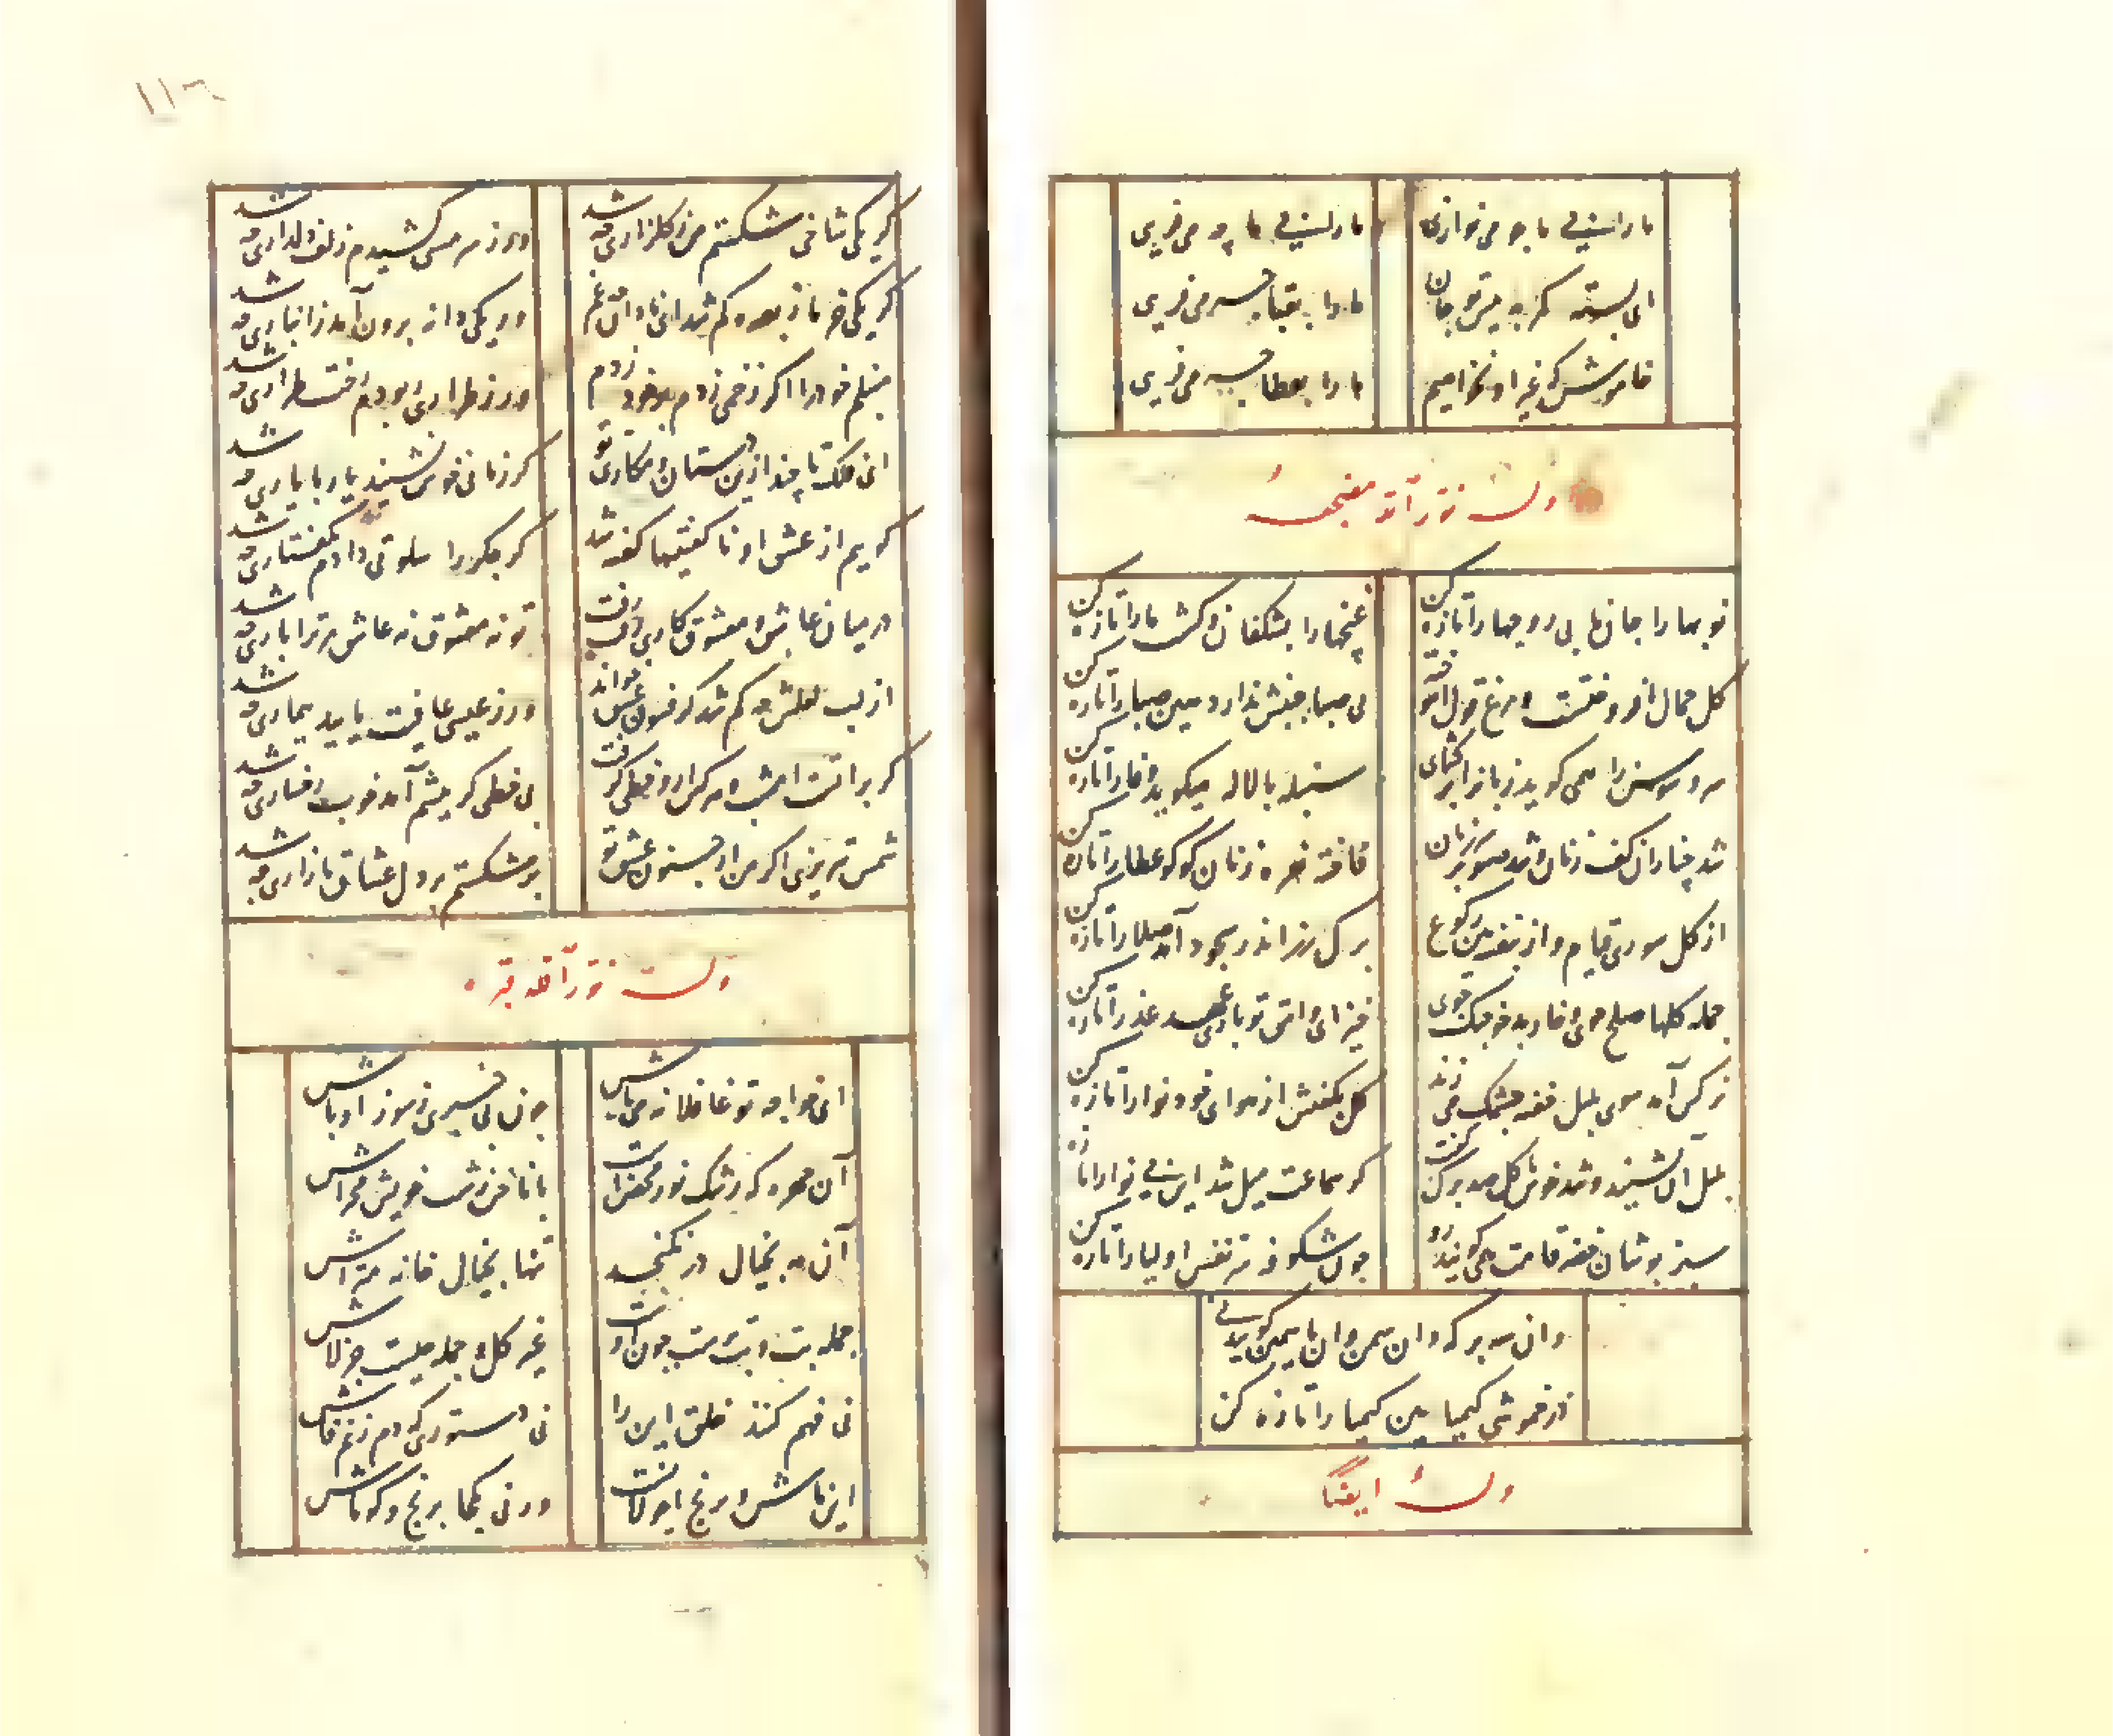 ما را سنیی ما چو می نوازی ما را سنیی ما چه می فریبی
ای بسته کمر به پیش تو جان ما را بقبا چه می فریبی
خاموش که غیر او نخواهیم ما را بعطا چه می فریبی
نوبهارا جان مایی روحها را تازه کن غنچها را بشکفان و کشت ما را تازه کن
گل جمال افروختست و مرغ قول آموخته بی صبا جنبش ندارد هین صبا را تازه کن
سرو سوسن را همی گوید زبان را بر گشای سنبله با لاله میگوید وفا را تازه کن
شد چناران کف زنان و شد صنوبر سر زنان فاخته نعره زنان کوکو عطا را تازه کن
از گل سوری قیام و از بنفشه بین رکوع برگ رز اندر سجود آمد صلا را تازه کن
جمله گلها صلح جوی و خار بدخو جنگ جوی خیز ای وامق تو باری عهد عذرا تازه کن
نرگس آمد سوی بلبل خفیه چشمک می زند گل بگفتش از هوای خود نوا را تازه کن
بلبل آن بشنید و شد خوش گل صد برگ گفت گر سماعت میل شد این بی نوا را تازه
سبز پوشان خضر قامت همی گویند رو چون شکوفه سر نفس اولیا را تازه کن
وان سه برگ و ان سمن و ان یاسمین گوید نی
در خموشی کیمیا بین کیمیا را تازه کن
وله ایضا
۱۱٦
گر یکی شاخی شکستم من ز گلزاری چه شد ور ز سر مستی کشیدم زلف دلداری چه شد
گر یکی خرما ز بصره کم شد ای نادان چه غم ور یکی دانه برون آمد ز انباری چه شد
منبلم خود را اگر زخمی زدم بر خود زدم ور ز طراری ربودم رخت طراری چه شد
ای فلک تا چند ازین دستان و مکاری تو گر زمانی خوش نشیند یار با یاری چه شد
گویم از عشق او ناگفتیها گفته شد گر جگر را سلوتی دادم بگفتاری چه شد
در میان عاشق و معشوق کاری رفت رفت تو نه معشوق نه عاشق مر ترا باری چه شد
از لب لعلش چه کم شد گر فسون عشق خواند ور ز عیسی عافیت یابید بیماری چه شد
گر براتست امشب هر کس ارو خطی گرفت بی خطی گر پیشم آمد خوب رخساری چه شد
شمس تبریزی اگر من از جنون عشق تو بر شکستم بر دل عشاق بازاری چه شد
ای خواجه تو غافلانه می باش چون بی خبری ز سوز اوباش
آن چهره که رشک نور فخر است با ناخن زشت خویش مخراش
آن مه بخیال در نگنجد تنها بخیال خانه متراش
جمله بت و بت پرست چون اوست غیر کل و جمله چیست جز لاش
نی فهم کنند خلق این را نی دستوری که دم زنم فاش
این ماش و برنج با هولانست ورنی بکجا برنج و کو ماش